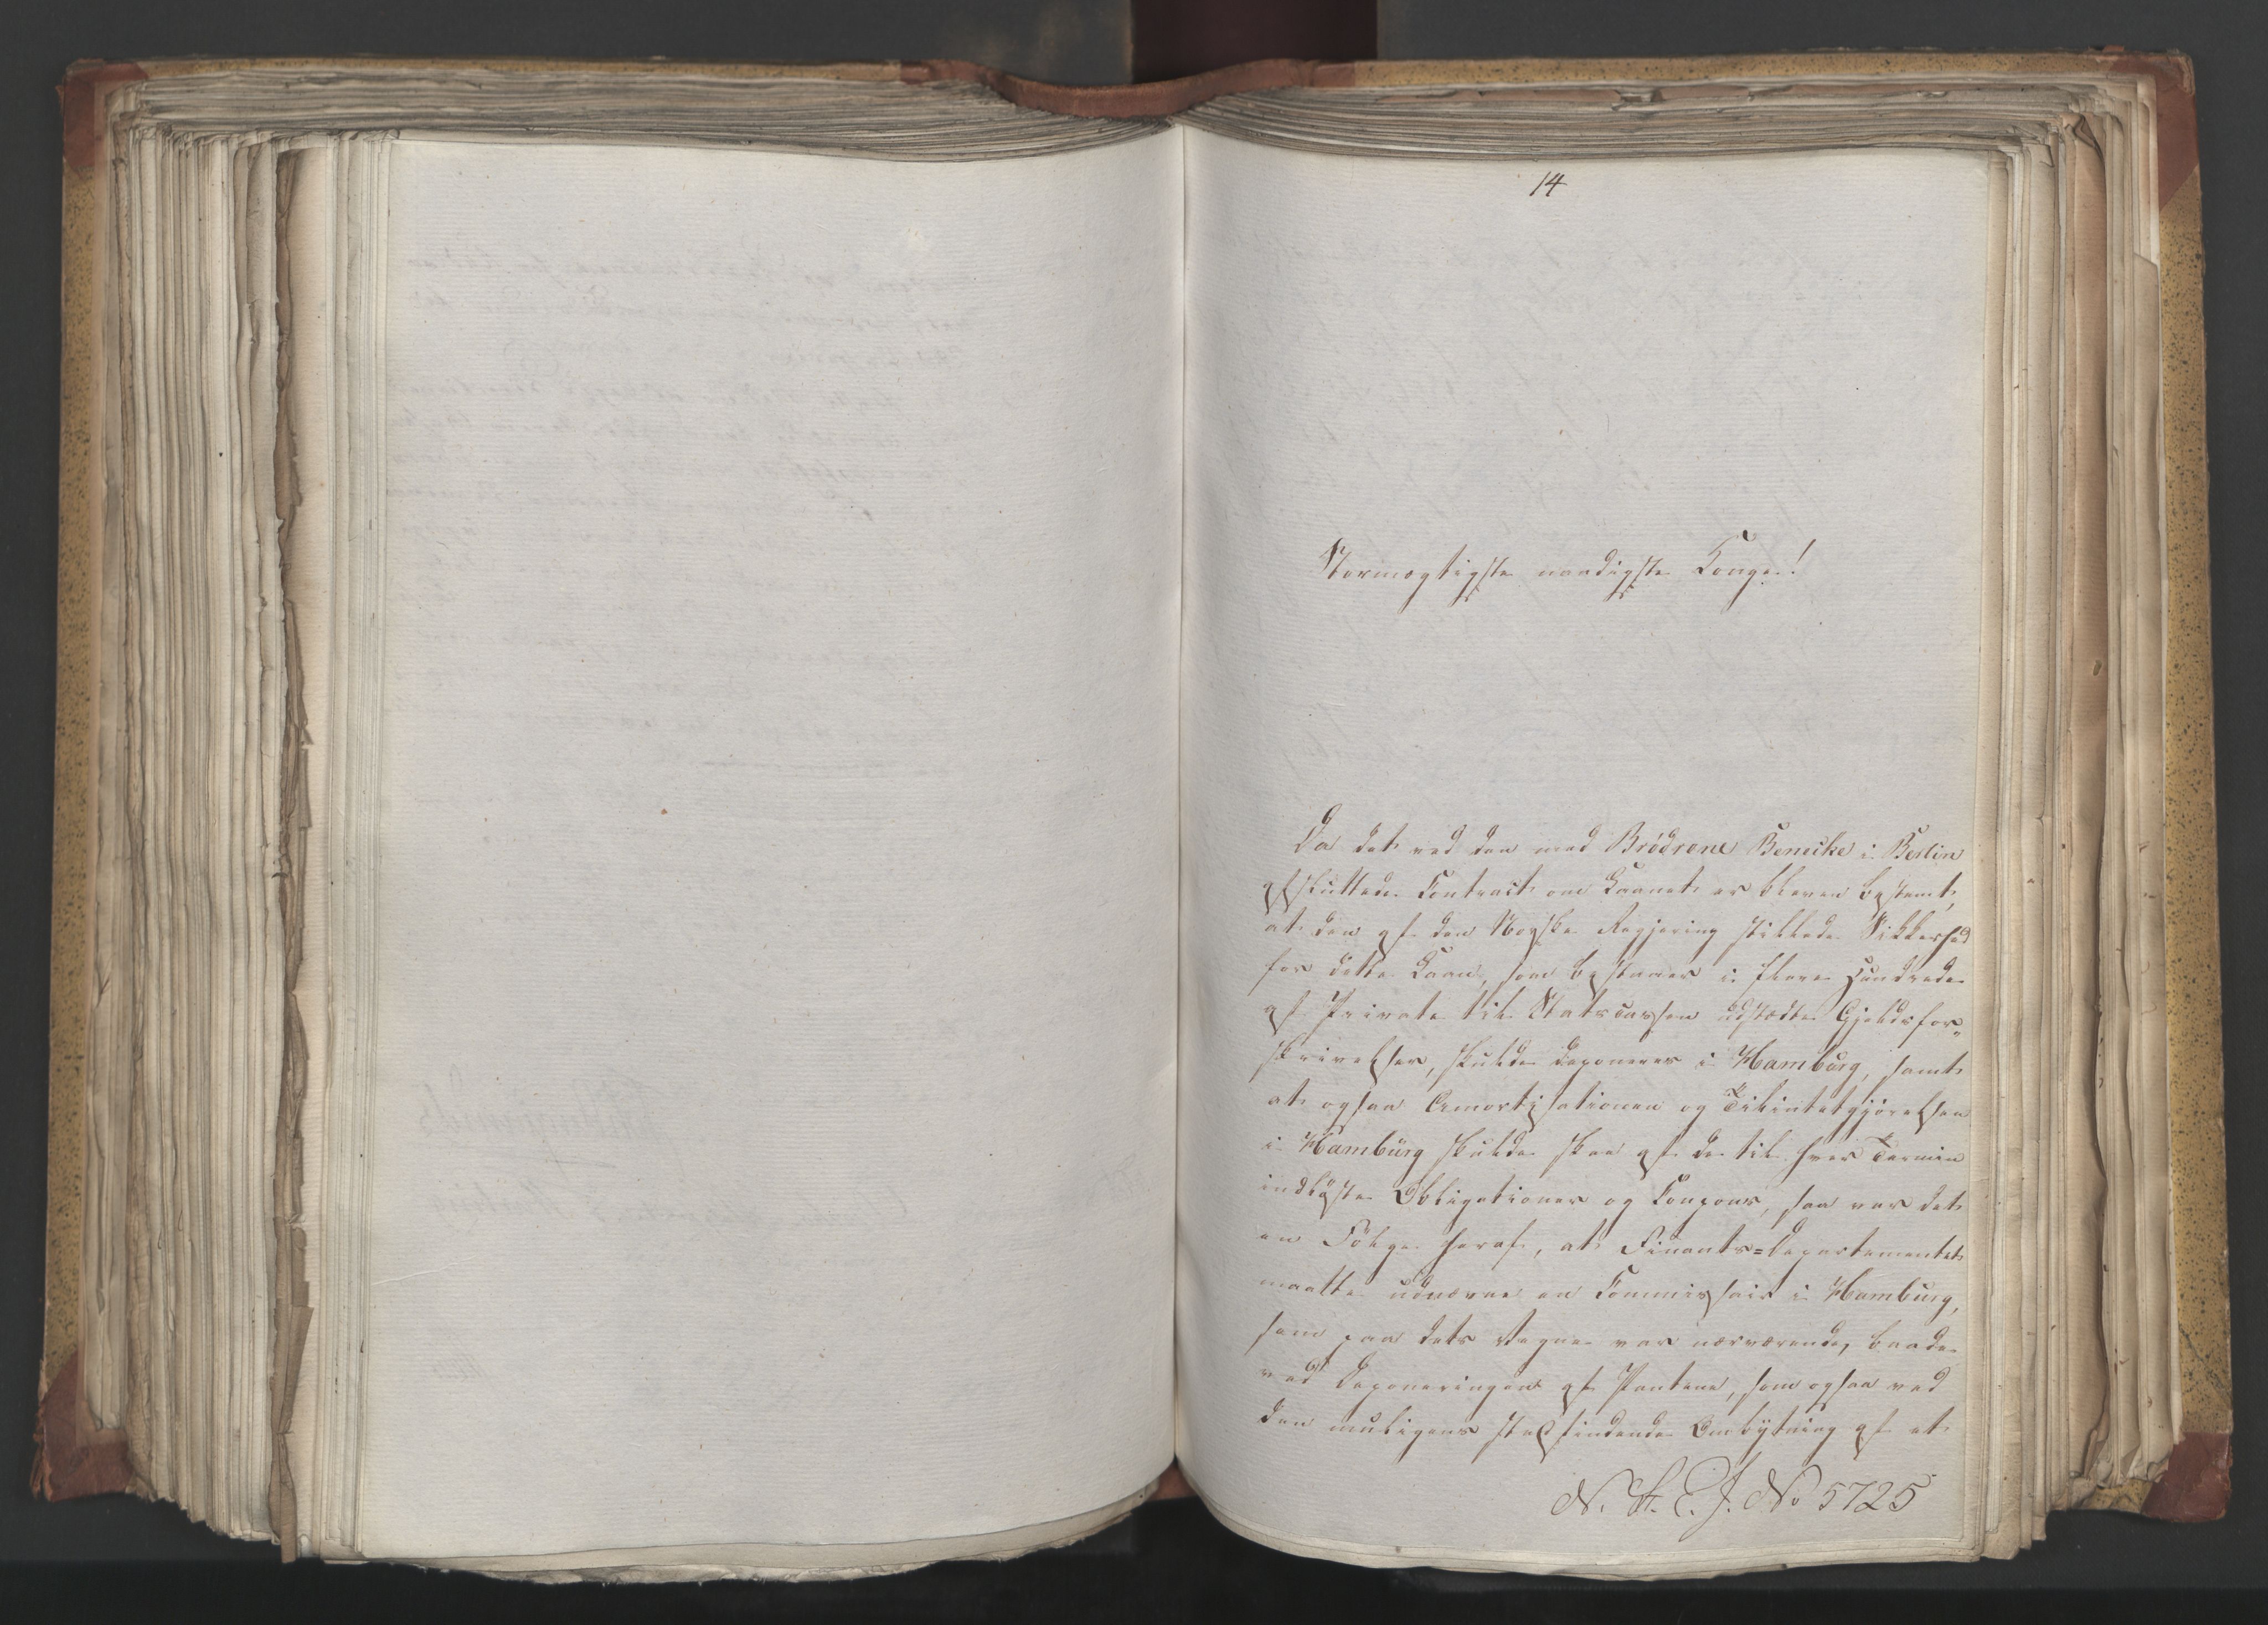 14
Stormægtigste naadigste Konge!
Da det ved den med Brødrene Benecke i Berlin
afsluttede Contract om Laanet er bleven bestemt,
at den af den Norske Regjering stillede Sikkerhed
for dette Laan, som bestaaer i flere Hundrede
af Private til Statscassen udstædte Gjeldsfor-
skrivelser, skulde deponeres i Hamburg, samt
at ogsaa Amortisationen og Tilintetgjørelsen
i Hamburg skulde skee af de til hver Termin
indløste Obligationer og Coupons, saa var det
en Følge heraf, at Finants=Departementet
maatte udnævne en Commissair i Hamburg,
som paa dets Vegne var nærværende, baade
ved Deponeringen af Pantene, som ogsaa ved
den muligens stedfindende Ombytning af et
N. St. E. J. No 5725